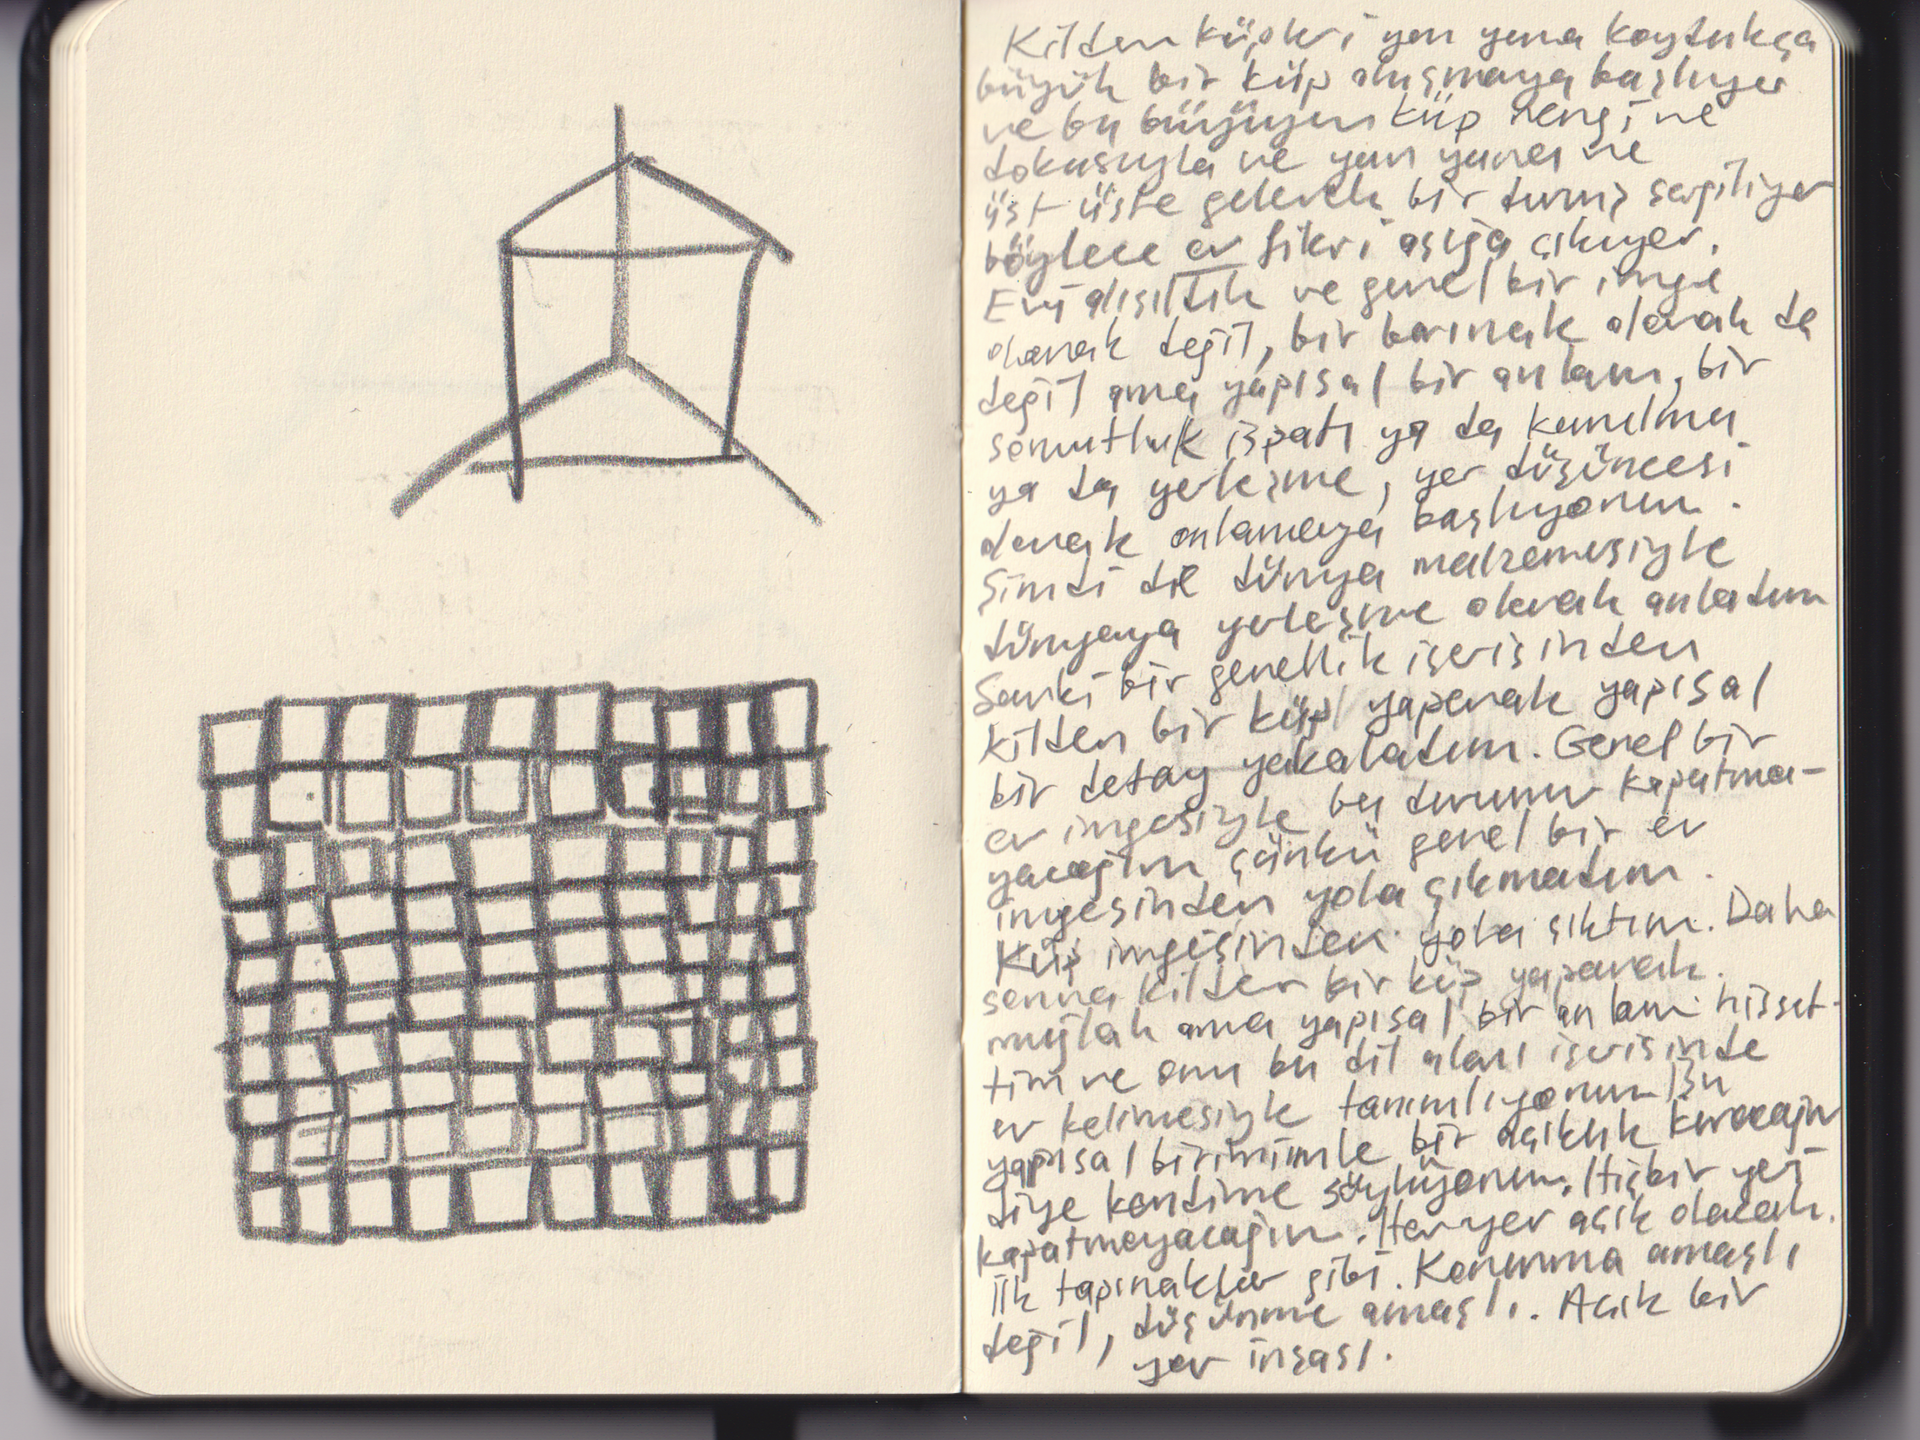 Kilden küpleri yan yana koydukça
büyük bir küp oluşmaya başlıyor
ve bu büyüyen küp rengi ve
dokusuyla ve yan yana ve
üst üste gelerek bir duruş sergiliyor
böylece ev fikri açığa çıkıyor.
Evi alışıldık ve genel bir imge
olarak değil, bir barınak olarak da
değil ama yapısal bir anlam, bir
somutluk ispatı ya da kurulma
ya da yerleşme, yer düşüncesi
olarak anlamaya başlıyorum.
Şimdi de dünya malzemesiyle
dünyaya yerleşme olarak anladım
Sanki bir genellik içerisinden
kilden bir küp yaparak yapısal
bir detay yakaladım. Genel bir
ev imgesiyle bu durumu kapatma-
yacağım çünkü genel bir ev
imgesinden yola çıkmadım.
Küp imgesinden yola çıktım. Daha
sonra kilden bir küp yaparak.
muğlak ama yapısal bir anlam hisset-
tim ve onu bu dil alanı içerisinde
ev kelimesiyle tanımlıyorum Bu
yapısal birimimle bir açıklık kuracağım
diye kendime söylüyorum. Hiçbir yeri
kapatmayacağım. Her yer açık olacak.
İlk tapınaklar gibi. Korunma amaçlı
değil, düşünme amaçlı. Açık bir
yer inşası.